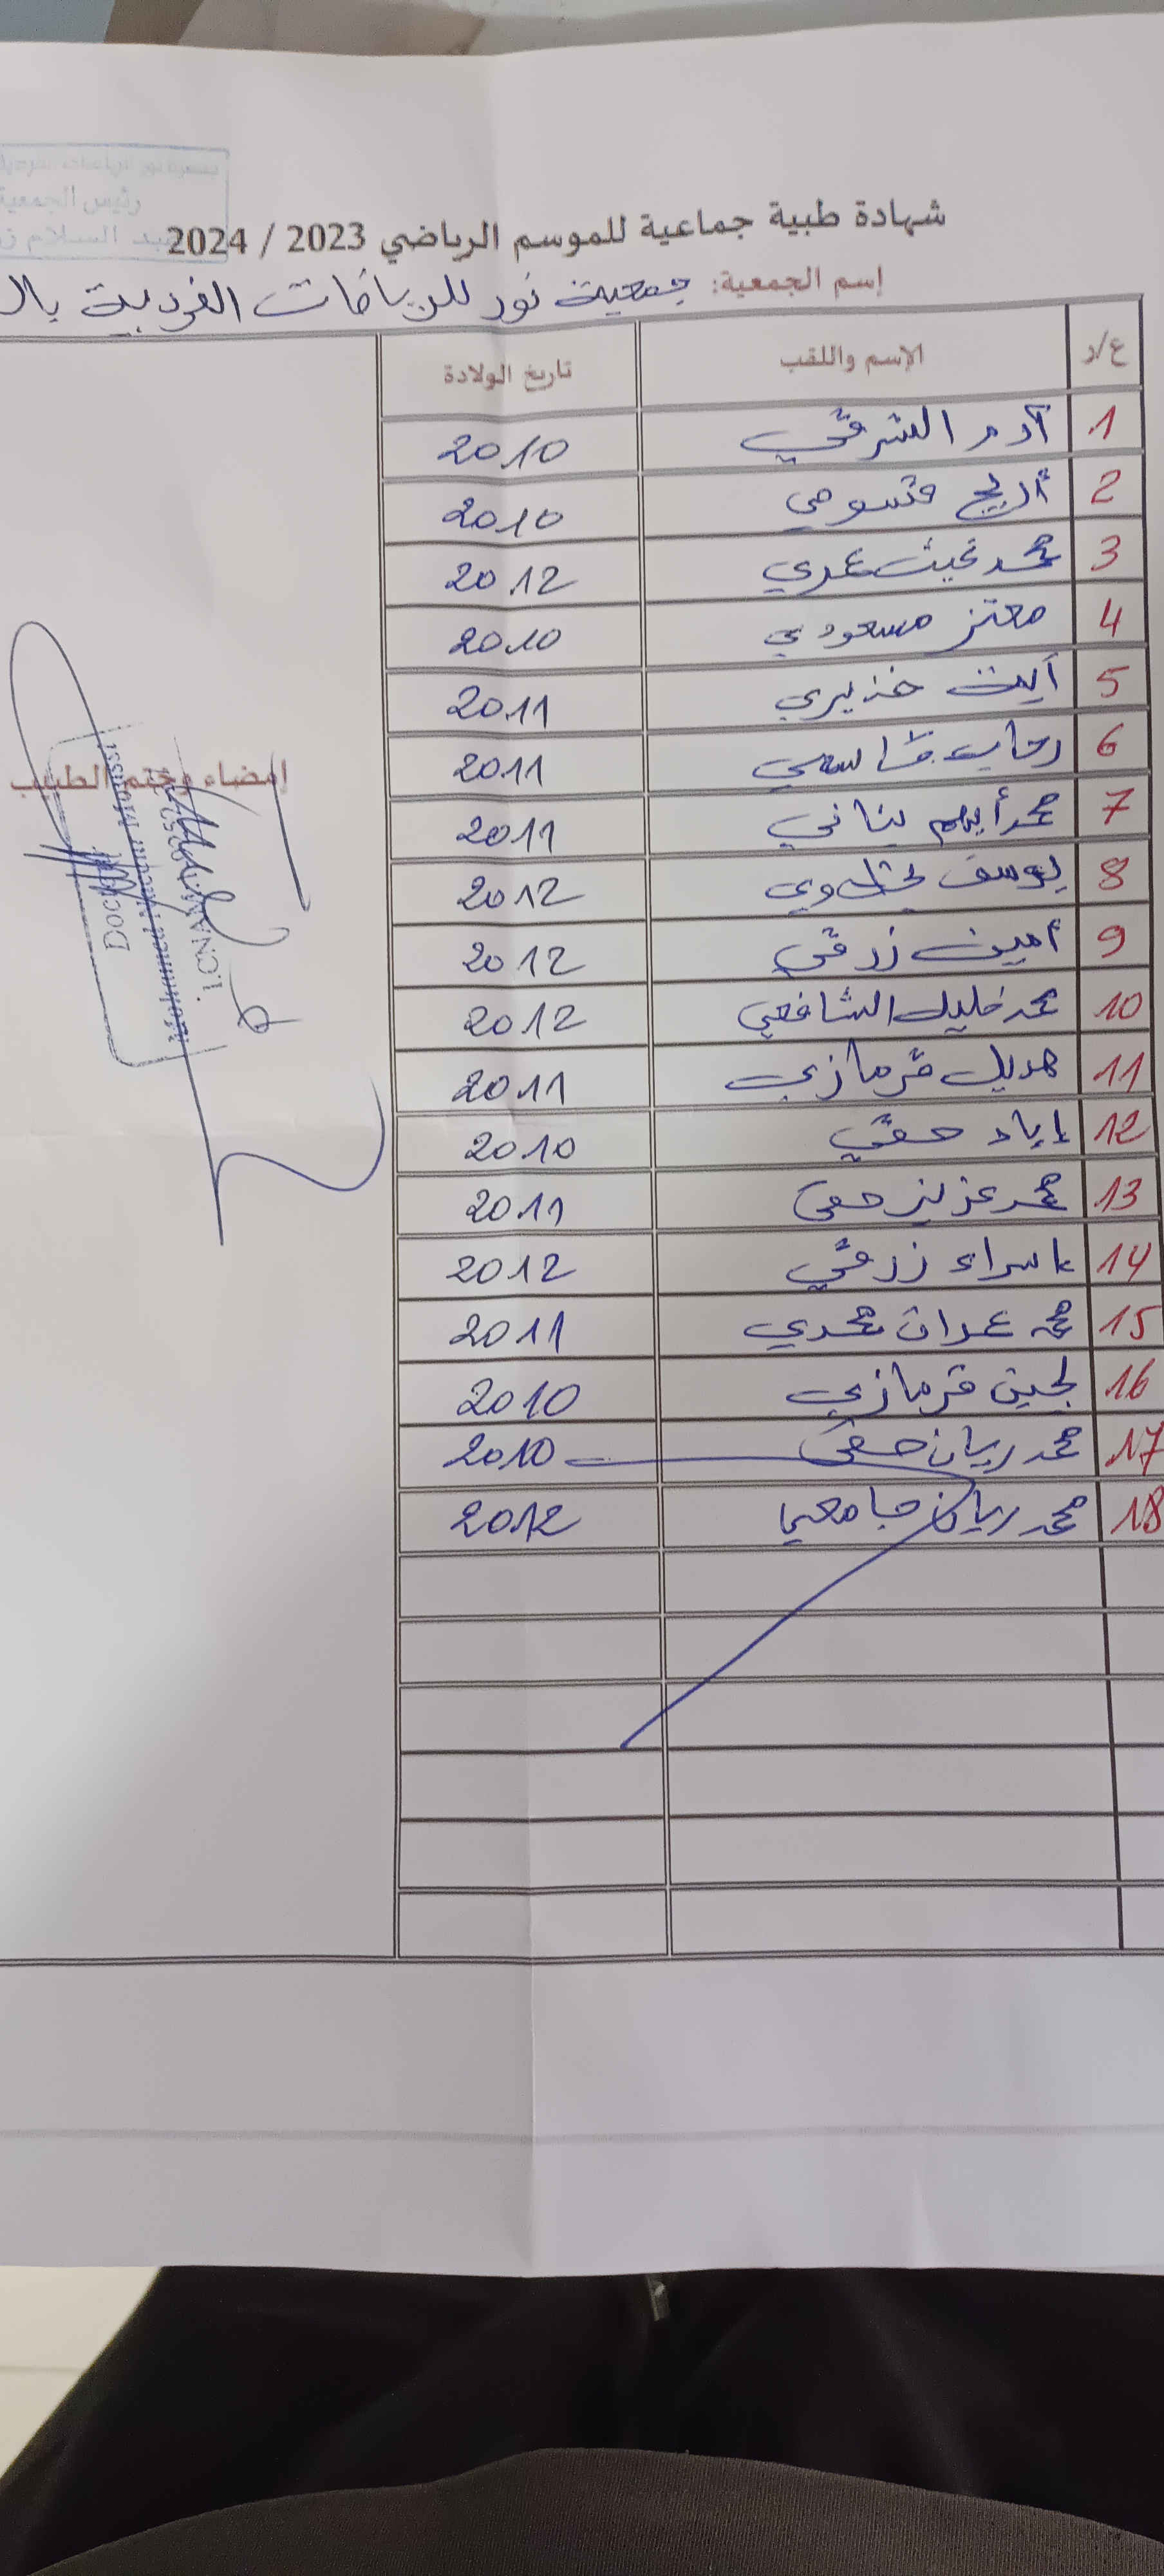 رئيس الجمعية
شهادة طبية جماعية للموسم الرياضي 2023 / 2024
إسم الجمعية: جمعية نور للرياضات الفردية بال
ع/ر الإسم واللقب تاريخ الولادة
1 آدم الشرقي 2010
2 أريج قسومي 2010
3 محمد غيث عمري 2012
4 معتز مسعودي 2010
5 آيت خذيري 2011
6 رحاب قاسمي 2011
7 محمد أيهم بناني 2011
8 يوسف 2012
9 أمين زرقي 2012
10 محمد خليل الشافعي 2012
11 هديل قرمازي 2011
12 إياد حقي 2010
13 محمد عزيز حقي 2011
14 إسراء زرقي 2012
15 محمد عمران محمدي 2011
16 لجين قرمازي 2010
17 محمد ريان حقي 2010
18 محمد ريان جامعي 2012
إمضاء وختم الطبيب
Docteur